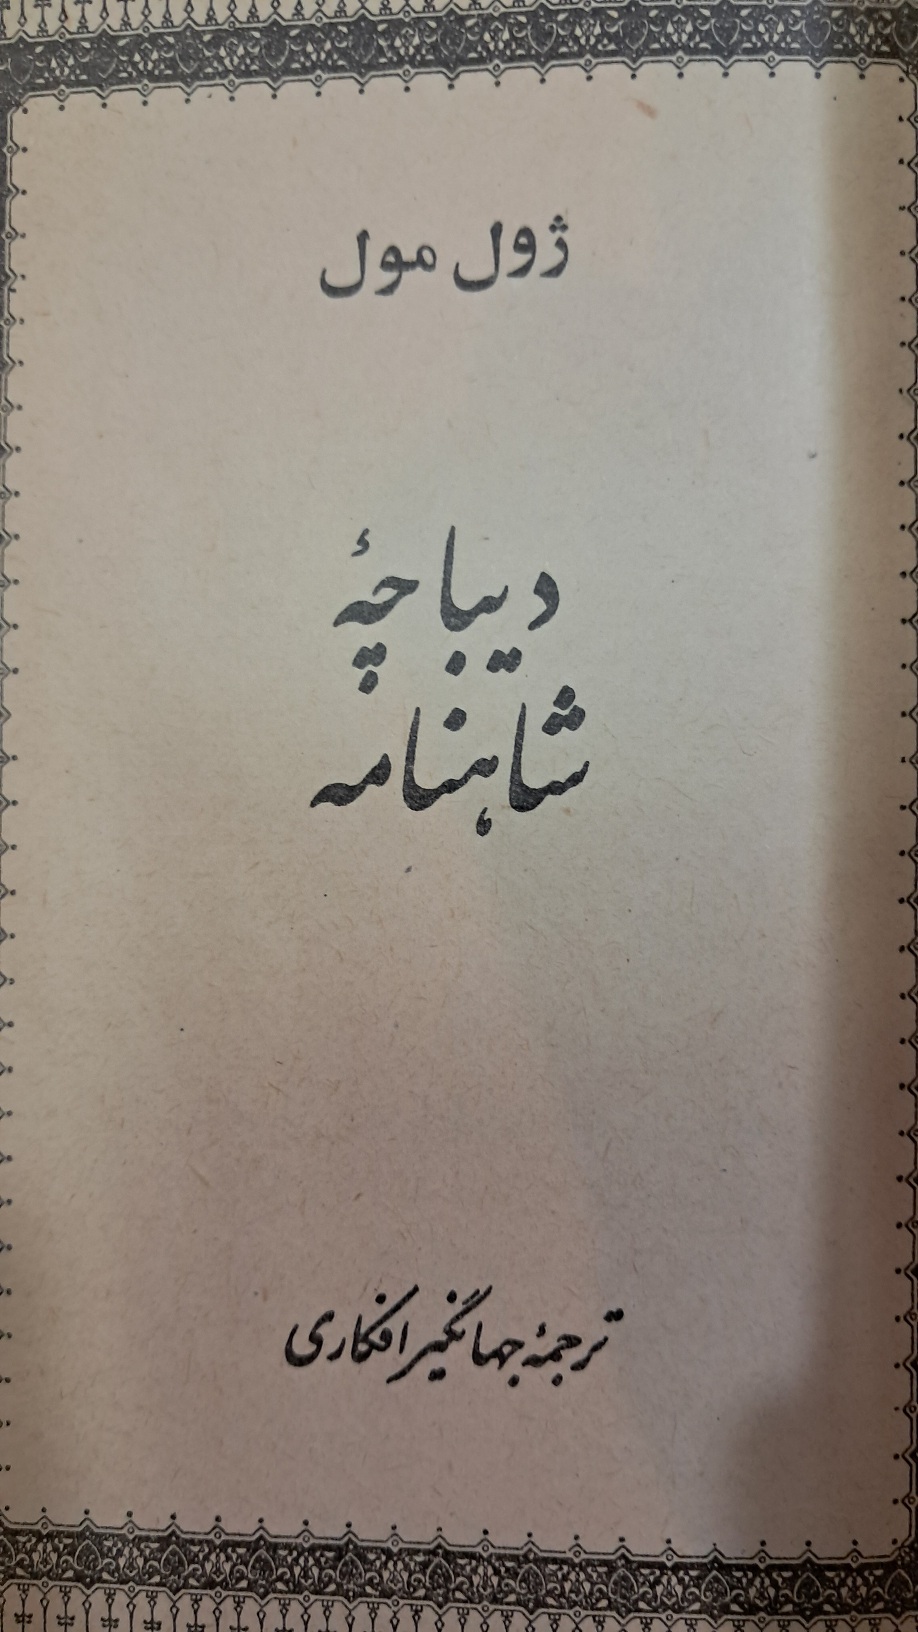 ژول مول
دیباچهٔ
شاهنامه
ترجمهٔ جهانگیر افکاری